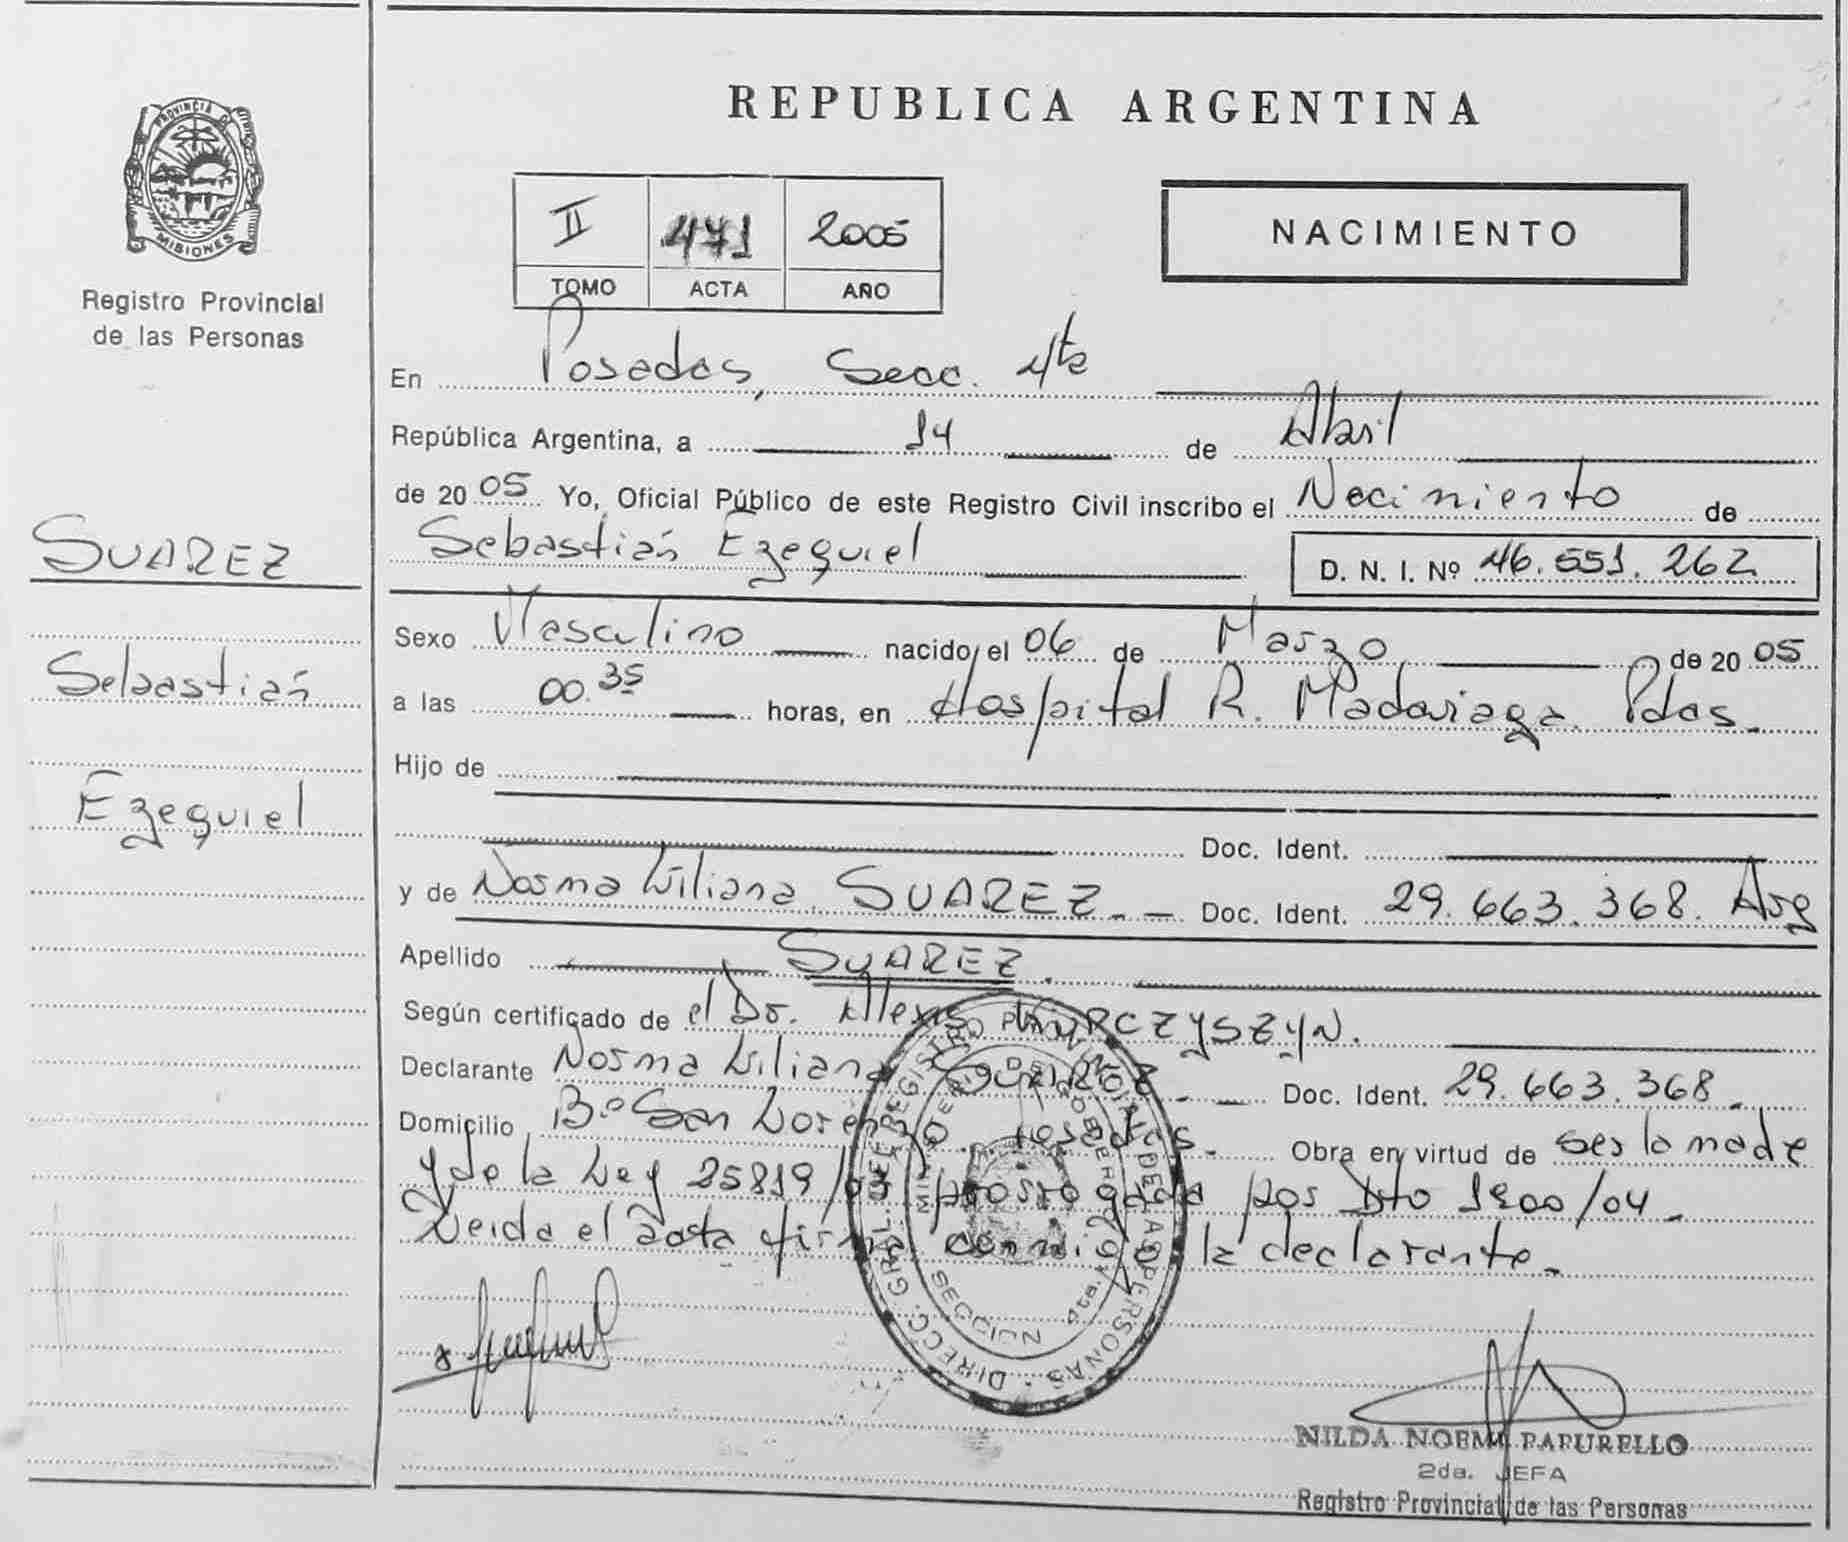 PROVINCIA DE
MISIONES
Registro Provincial
de las Personas
SUAREZ
Sebastián
Ezequiel
REPUBLICA ARGENTINA
II 471 2005
TOMO ACTA AÑO
NACIMIENTO
En Posadas, Secc. 4ta
República Argentina, a 14 de Abril
de 2005 Yo, Oficial Público de este Registro Civil inscribo el Nacimiento de
Sebastián Ezequiel D. N. I. Nº 46.551.262
Sexo Masculino nacido el 06 de Marzo de 2005
a las 00.35 horas, en Hospital R. Madariaga. Pdas.
Hijo de
Doc. Ident.
y de Norma Liliana SUAREZ.- Doc. Ident. 29.663.368. Arg
Apellido SUAREZ.
Según certificado de el Dr. Alexis
Declarante Norma Liliana Suarez.- Doc. Ident. 29.663.368.
Domicilio Bº San Lorenzo. Posadas. Obra en virtud de ser la madre
y de la Ley 25819/03 prorrogada por Dto 1900/04.
Leida el acta firma conmigo la declarante.
DIRECC. GRAL. DEL REGISTRO PROVINCIAL DE LAS PERSONAS
MINISTERIO DE GOBIERNO
SECCION 4ta.
NILDA NOEMI PAPURELLO
2da. JEFA
Registro Provincial de las Personas